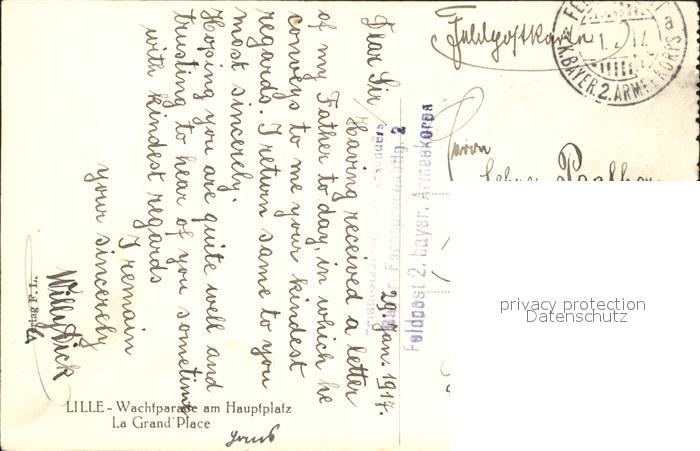 Feldpostkarte
K. BAYER. 2. ARMEEKORPS
a
Herrn
Feldpost 2. bayer. Armeekorps
29. Jan. 1917.
Dear Sir/
Having received a letter
of my Father to day, in which he
conveys to me your kindest
regards. I return same to you
most sincerely.
Hoping you are quite well and
trusting to hear of you sometime
with kindest regards
I remain
your sincerely
Willy Dick
Verlag F. L.
LILLE - Wachtparade am Hauptplatz
La Grand' Place
privacy protection
Datenschutz